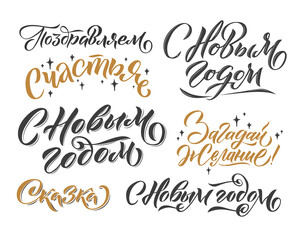 Поздравляем
Счастья
С Новым
годом
Сказка
С Новым
годом
Загадай
Желание!
С Новым годом